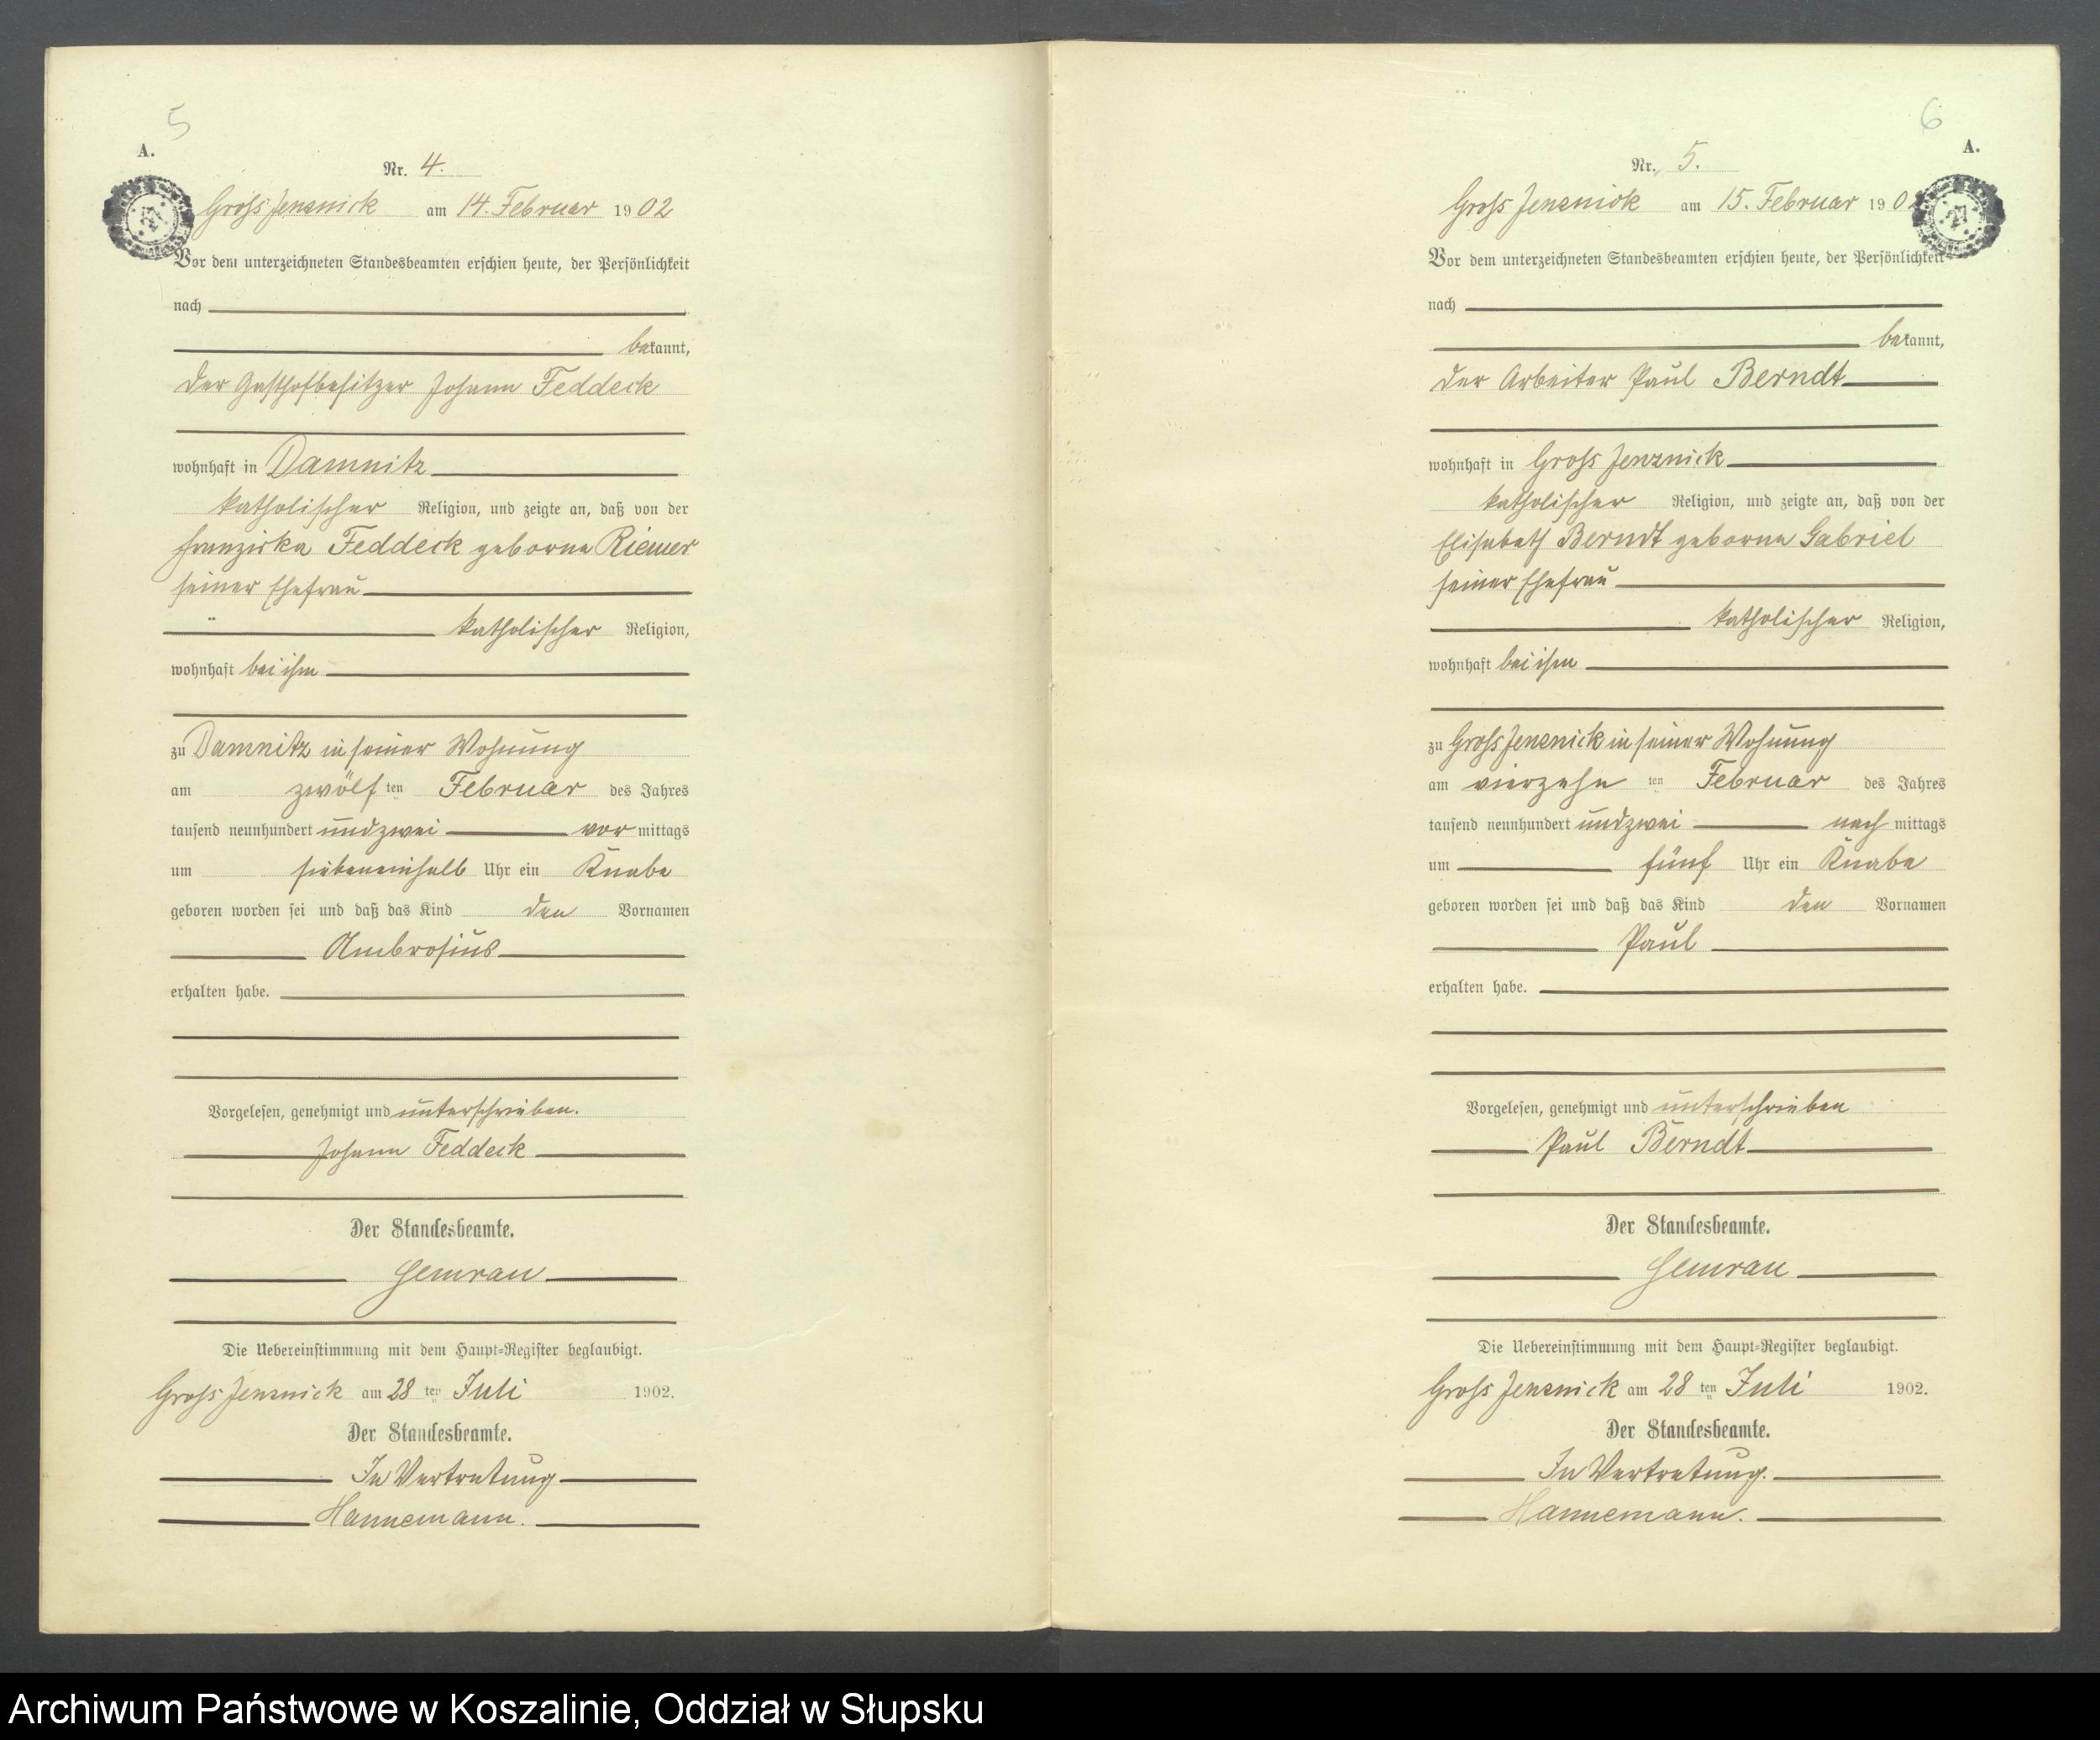 5
A.
Nr. 4.
Groß Jenznick am 14. Februar 1902
Vor dem unterzeichneten Standesbeamten erschien heute, der Persönlichkeit
nach
bekannt,
der Gasthofbesitzer Johann Feddeck
wohnhaft in Damnitz
katholischer Religion, und zeigte an, daß von der
Franziska Feddeck geborne Riemer
seiner Ehefrau
katholischer Religion,
wohnhaft bei ihm
zu Damnitz in seiner Wohnung
am zwölf ten Februar des Jahres
tausend neunhundert undzwei vor mittags
um siebeneinhalb Uhr ein Knabe
geboren worden sei und daß das Kind den Vornamen
Ambrosius
erhalten habe.
Vorgelesen, genehmigt und unterschrieben.
Johann Feddeck
Der Standesbeamte.
Gemrau
Die Uebereinstimmung mit dem Haupt-Register beglaubigt.
Groß Jenznick am 28 ten Juli 1902.
Der Standesbeamte.
In Vertretung
Hannemann.
6
A.
Nr. 5.
Groß Jenznick am 15. Februar 190
Vor dem unterzeichneten Standesbeamten erschien heute, der Persönlichkeit
nach
bekannt,
der Arbeiter Paul Berndt
wohnhaft in Groß Jenznick
katholischer Religion, und zeigte an, daß von der
Elisabeth Berndt geborne Gabriel
seiner Ehefrau
katholischer Religion,
wohnhaft bei ihm
zu Groß Jenznick in seiner Wohnung
am vierzehn ten Februar des Jahres
tausend neunhundert undzwei nach mittags
um fünf Uhr ein Knabe
geboren worden sei und daß das Kind den Vornamen
Paul
erhalten habe.
Vorgelesen, genehmigt und unterschrieben
Paul Berndt
Der Standesbeamte.
Gemrau
Die Uebereinstimmung mit dem Haupt-Register beglaubigt.
Groß Jenznick am 28 ten Juli 1902.
Der Standesbeamte.
In Vertretung.
Hannemann.
Archiwum Państwowe w Koszalinie, Oddział w Słupsku